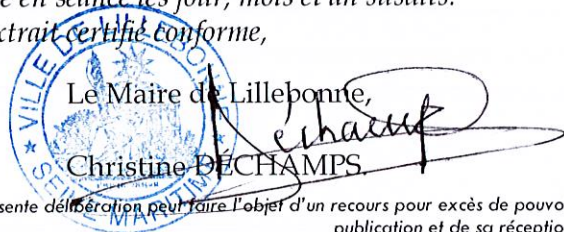 en séance les jour, mois et an susdits.
extrait certifié conforme,
VILLE DE LILLEBONNE
Le Maire de Lillebonne,
Déchamps
Christine DÉCHAMPS.
SEINE MARITIME
sente délibération peut faire l'objet d'un recours pour excès de pouvo
publication et de sa réceptio